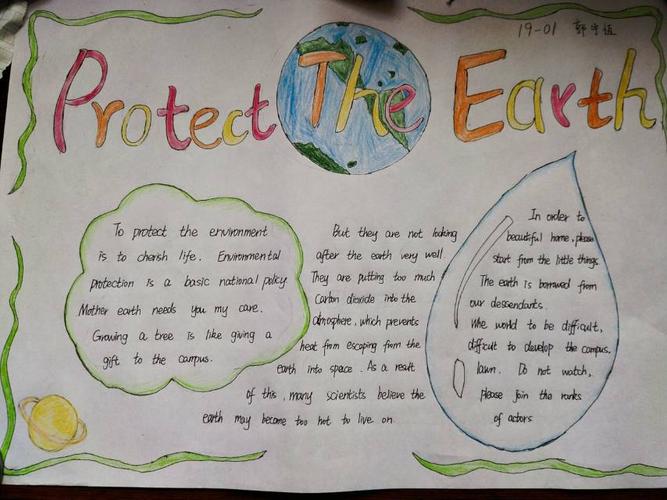 19-01 郭宇恒
Protect The Earth
To protect the environment
is to cherish life. Environmental
protection is a basic national policy.
Mother earth needs you my care.
Growing a tree is like giving a
gift to the campus.
But they are not looking
after the earth very well.
They are putting too much
Carbon dioxide into the
atmosphere, which prevents
heat from escaping from the
earth into space. As a result
of this, many scientists believe the
earth may become too hot to live on.
In order to
beautiful home, please
start from the little things.
The earth is borrowed from
our dessendants.
Whe world to be difficult,
difficult to develop the campus.
lawn. Do not watch,
please join the ranks
of actors